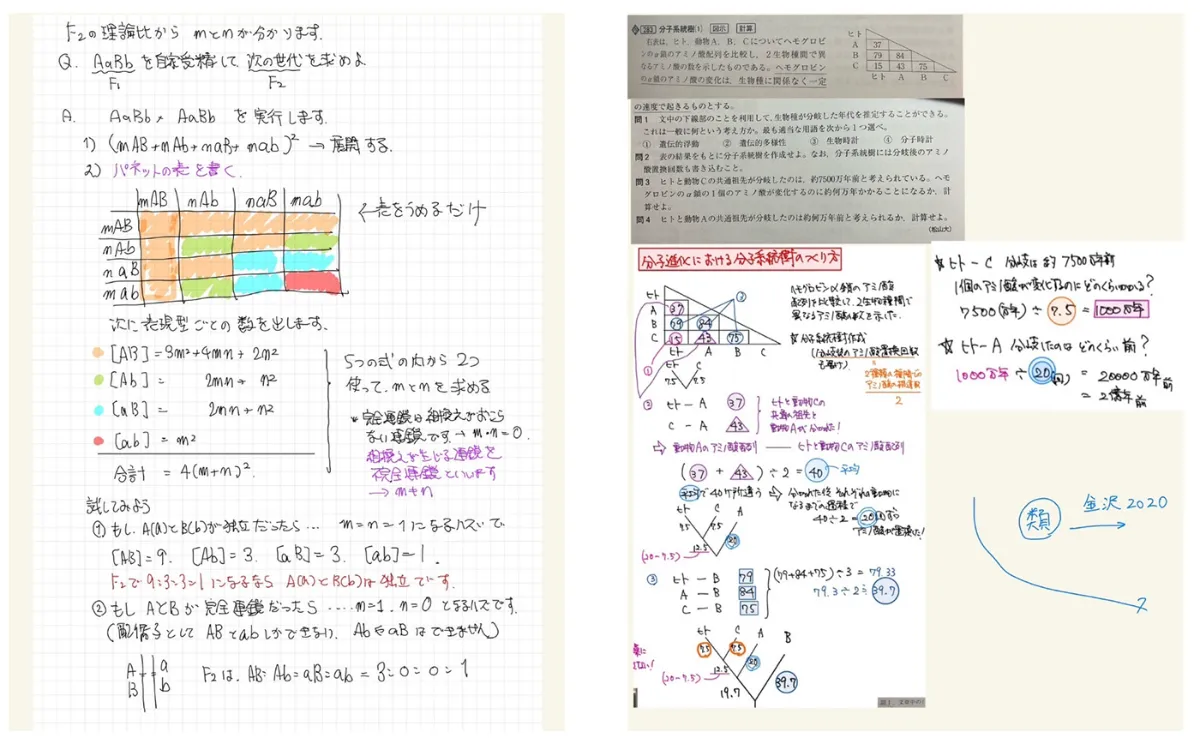 F₂の理論比から mとnが分かります。
Q. AaBbを自家受精して次の世代を求めよ
F₁ F₂
A. AaBb × AaBb を実行します。
1) (mAB+nAb+naB+mab)² → 展開する。
2) パネットの表を書く。
mAB nAb naB mab
mAB
nAb
naB
mab
←表をうめるだけ
次に表現型ごとの数を出します。
[AB]=3m²+4mn+2n²
[Ab]= 2mn+n²
[aB]= 2mn+n²
[ab]=m²
合計 = 4(m+n)².
5つの式の内から2つ
使って、mとnを求める
* 完全連鎖は組換えがおこら
ない連鎖です→m・n=0.
組換えが生じる連鎖を
不完全連鎖といいます
→ m≠n
試してみよう
① もし、A(a)とB(b)が独立だったら… m=n=1になるハズで
[AB]=9. [Ab]=3. [aB]=3. [ab]=1.
F₂で9:3:3:1になるなら A(a)とB(b)は独立です。
② もし AとBが完全連鎖だったら ……m=1. n=0 となるハズです.
(配偶子として ABとabしかできない. AbやaBはできません)
A a
B b
F₂は. AB:Ab:aB:ab = 3:0:0:1
283 分子系統樹(1) 図示 計算
右表は、ヒト、動物A、B、Cについてヘモグロビ
ンのα鎖のアミノ酸配列を比較し、2生物種間で異
なるアミノ酸の数を示したものである。ヘモグロビン
のα鎖のアミノ酸の変化は、生物種に関係なく一定
ヒト
A 37
B 79 84
C 15 43 75
ヒト A B C
の速度で起きるものとする。
問1 文中の下線部のことを利用して、生物種が分岐した年代を推定することができる。
これは一般に何という考え方か。最も適当な用語を次から1つ選べ。
① 遺伝的浮動 ② 遺伝的多様性 ③ 生物時計 ④ 分子時計
問2 表の結果をもとに分子系統樹を作成せよ。なお、分子系統樹には分岐後のアミノ
酸置換回数も書き込むこと。
問3 ヒトと動物Cの共通祖先が分岐したのは、約7500万年前と考えられている。ヘモ
グロビンのα鎖の1個のアミノ酸が変化するのに約何万年かかることになるか、計
算せよ。
問4 ヒトと動物Aの共通祖先が分岐したのは約何万年前と考えられるか、計算せよ。
(松山大)
分子進化における分子系統樹のつくり方
ヒト
A 37
B 79 84
C 15 43 75
ヒト A B C
①
②
ヘモグロビンα鎖のアミノ酸
配列を比較して、2生物種間で
異なるアミノ酸の数を示した。
☆分子系統樹作成
(分岐後のアミノ酸置換回数
2
ヒト C
7.5 7.5
② ヒト — A 37
C — A 43
ヒトと動物Cの
共通の祖先と
動物Aが分かれた!
⇨ 動物Aのアミノ酸配列 —— ヒトと動物Cのアミノ酸配列
(37 + 43) ÷ 2 = 40 平均
平均で40ヶ所違う ⇨ 分かれた後 それぞれの動物に
なるまでの過程で
40÷2=20回ずつ
アミノ酸が置換した!
ヒト C A
7.5 7.5 20
12.5
(20-7.5)
③ ヒト — B 79
A — B 84
C — B 75
(79+84+75)÷3=79.33
79.3÷2≒39.7
ヒト C A B
7.5 7.5 20
12.5
(20-7.5)
19.7 39.7
☆ヒト-C 分岐は約7500万年前
1個のアミノ酸が変化するのにどのくらいかかる?
7500(万年) ÷ 7.5 = 1000万年
☆ヒト-A 分岐したのはどのくらい前?
1000万年 ÷ 20(回) = 20000万年前
= 2億年前
類 金沢2020